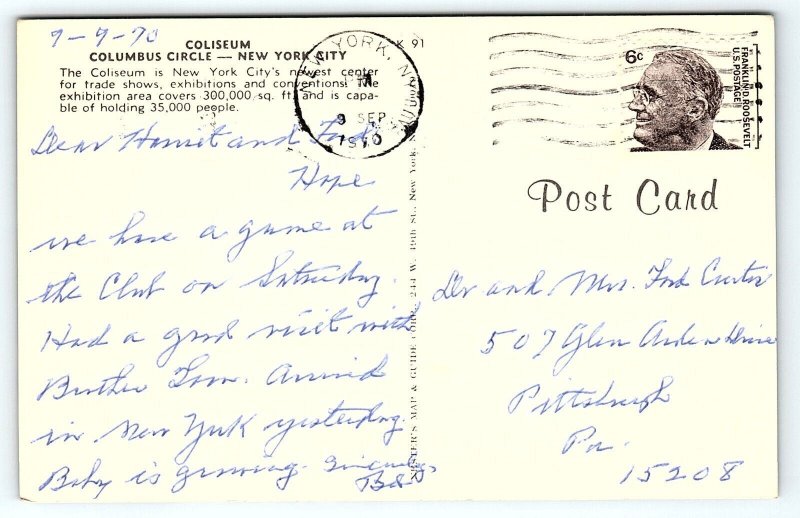 9-9-70
COLISEUM
COLUMBUS CIRCLE — NEW YORK CITY
The Coliseum is New York City's newest center
for trade shows, exhibitions and conventions. The
exhibition area covers 300,000 sq. ft. and is capa-
ble of holding 35,000 people.
K 91
NEW YORK, N.Y.
PM
9 SEP
1970
6c
FRANKLIN D. ROOSEVELT
U.S. POSTAGE
Post Card
Dear Harriet and Ford
Hope
we have a game at
the Club on Saturday.
Had a good visit with
Brother Tom. Arrived
in New York yesterday.
Baby is growing. Sincerely,
MAP & GUIDE CORP., 244 W. 49th St., New York
Dr and Mrs. Ford Curtis
507 Glen Arden Drive
Pittsburgh
Pa.
15208